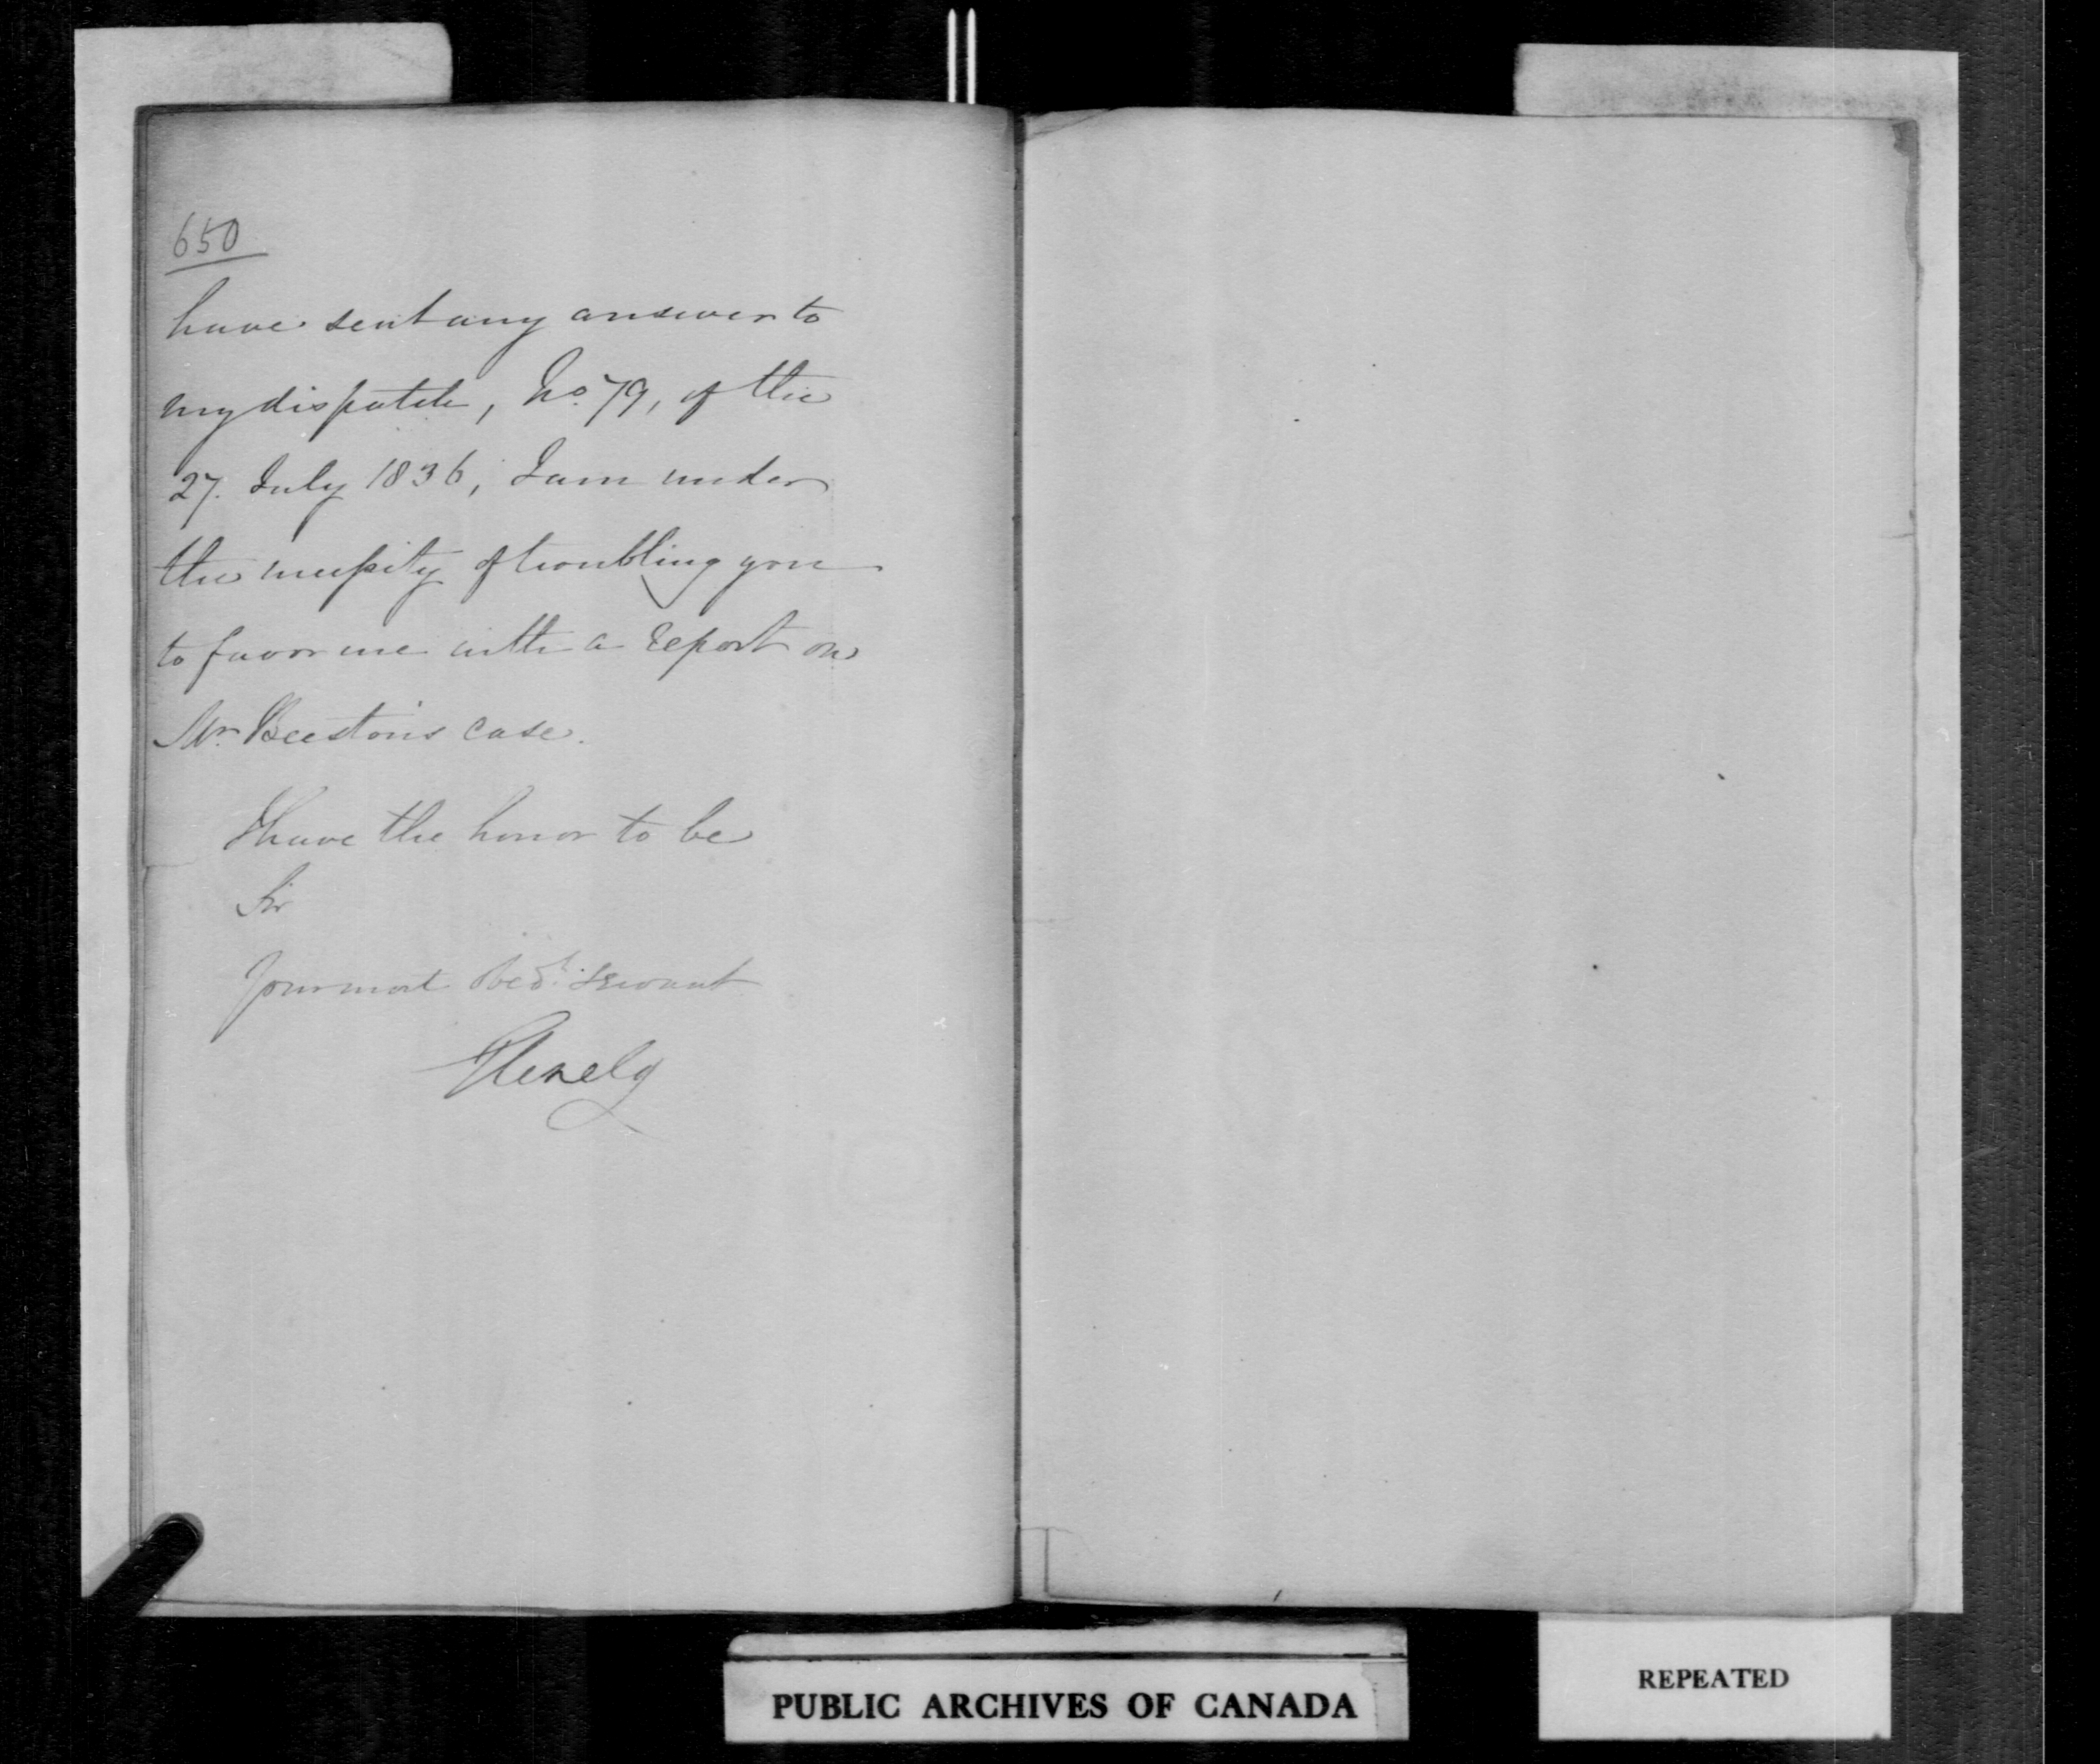 650
have sent any answer to
my dispatch, No. 79, of the
27. July 1836, I am under
the necessity of troubling you
to favor me with a report on
Mr. Beeston's case.
I have the honor to be
Sir
Your most obedt. Servant
Glenelg
PUBLIC ARCHIVES OF CANADA
REPEATED